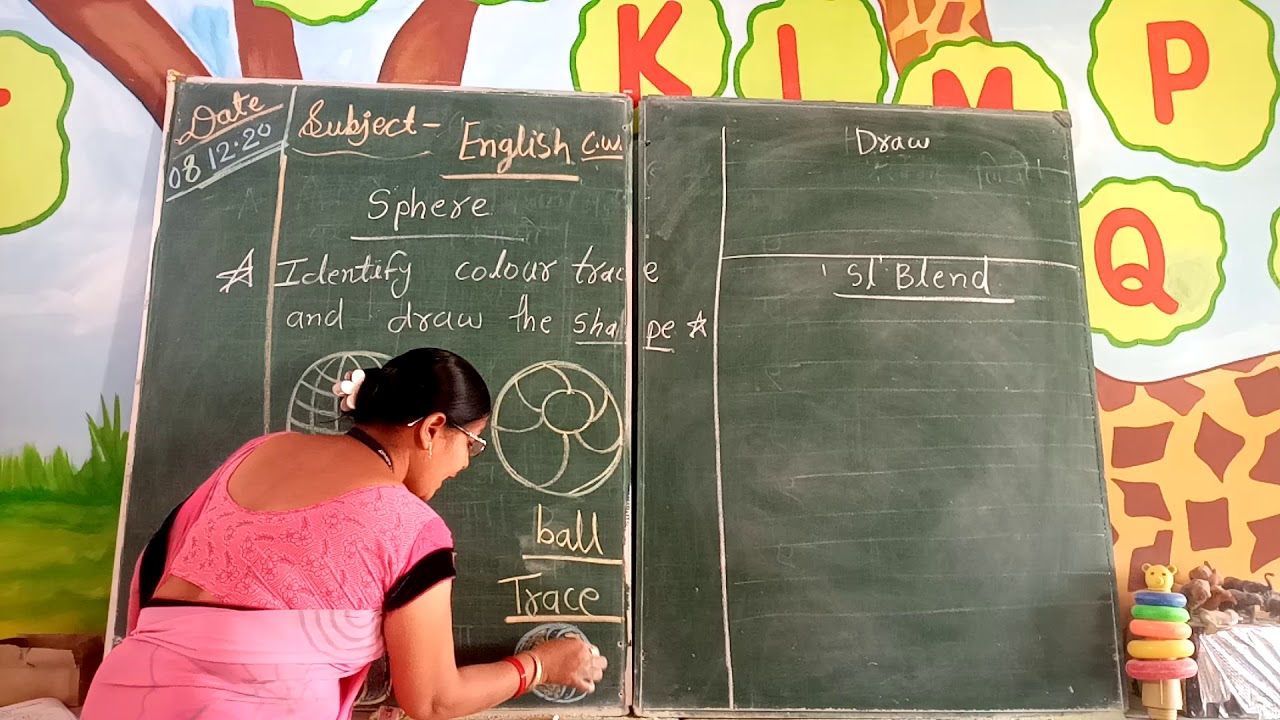 K L M P
Q
Date
08 12.20
Subject- English C.W.
Sphere
☆ Identify colour trace
and draw the shape ☆
ball
Trace
Draw
'Sl' Blend